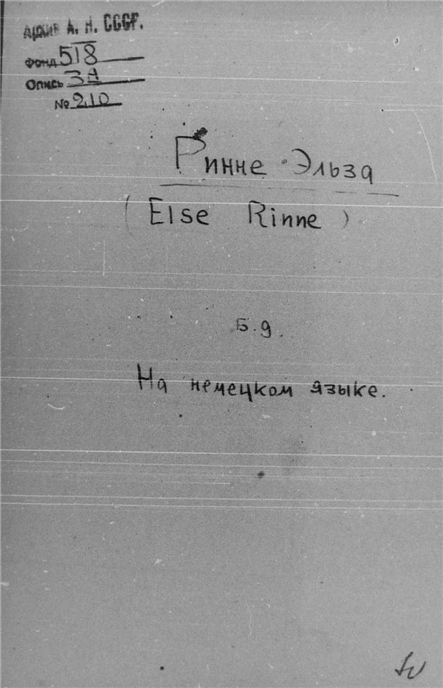 Архив А. Н. СССР.
Фонд 518
Опись 3А
№ 210
Ринне Эльза
(Else Rinne)
Б. д.
На немецком языке.